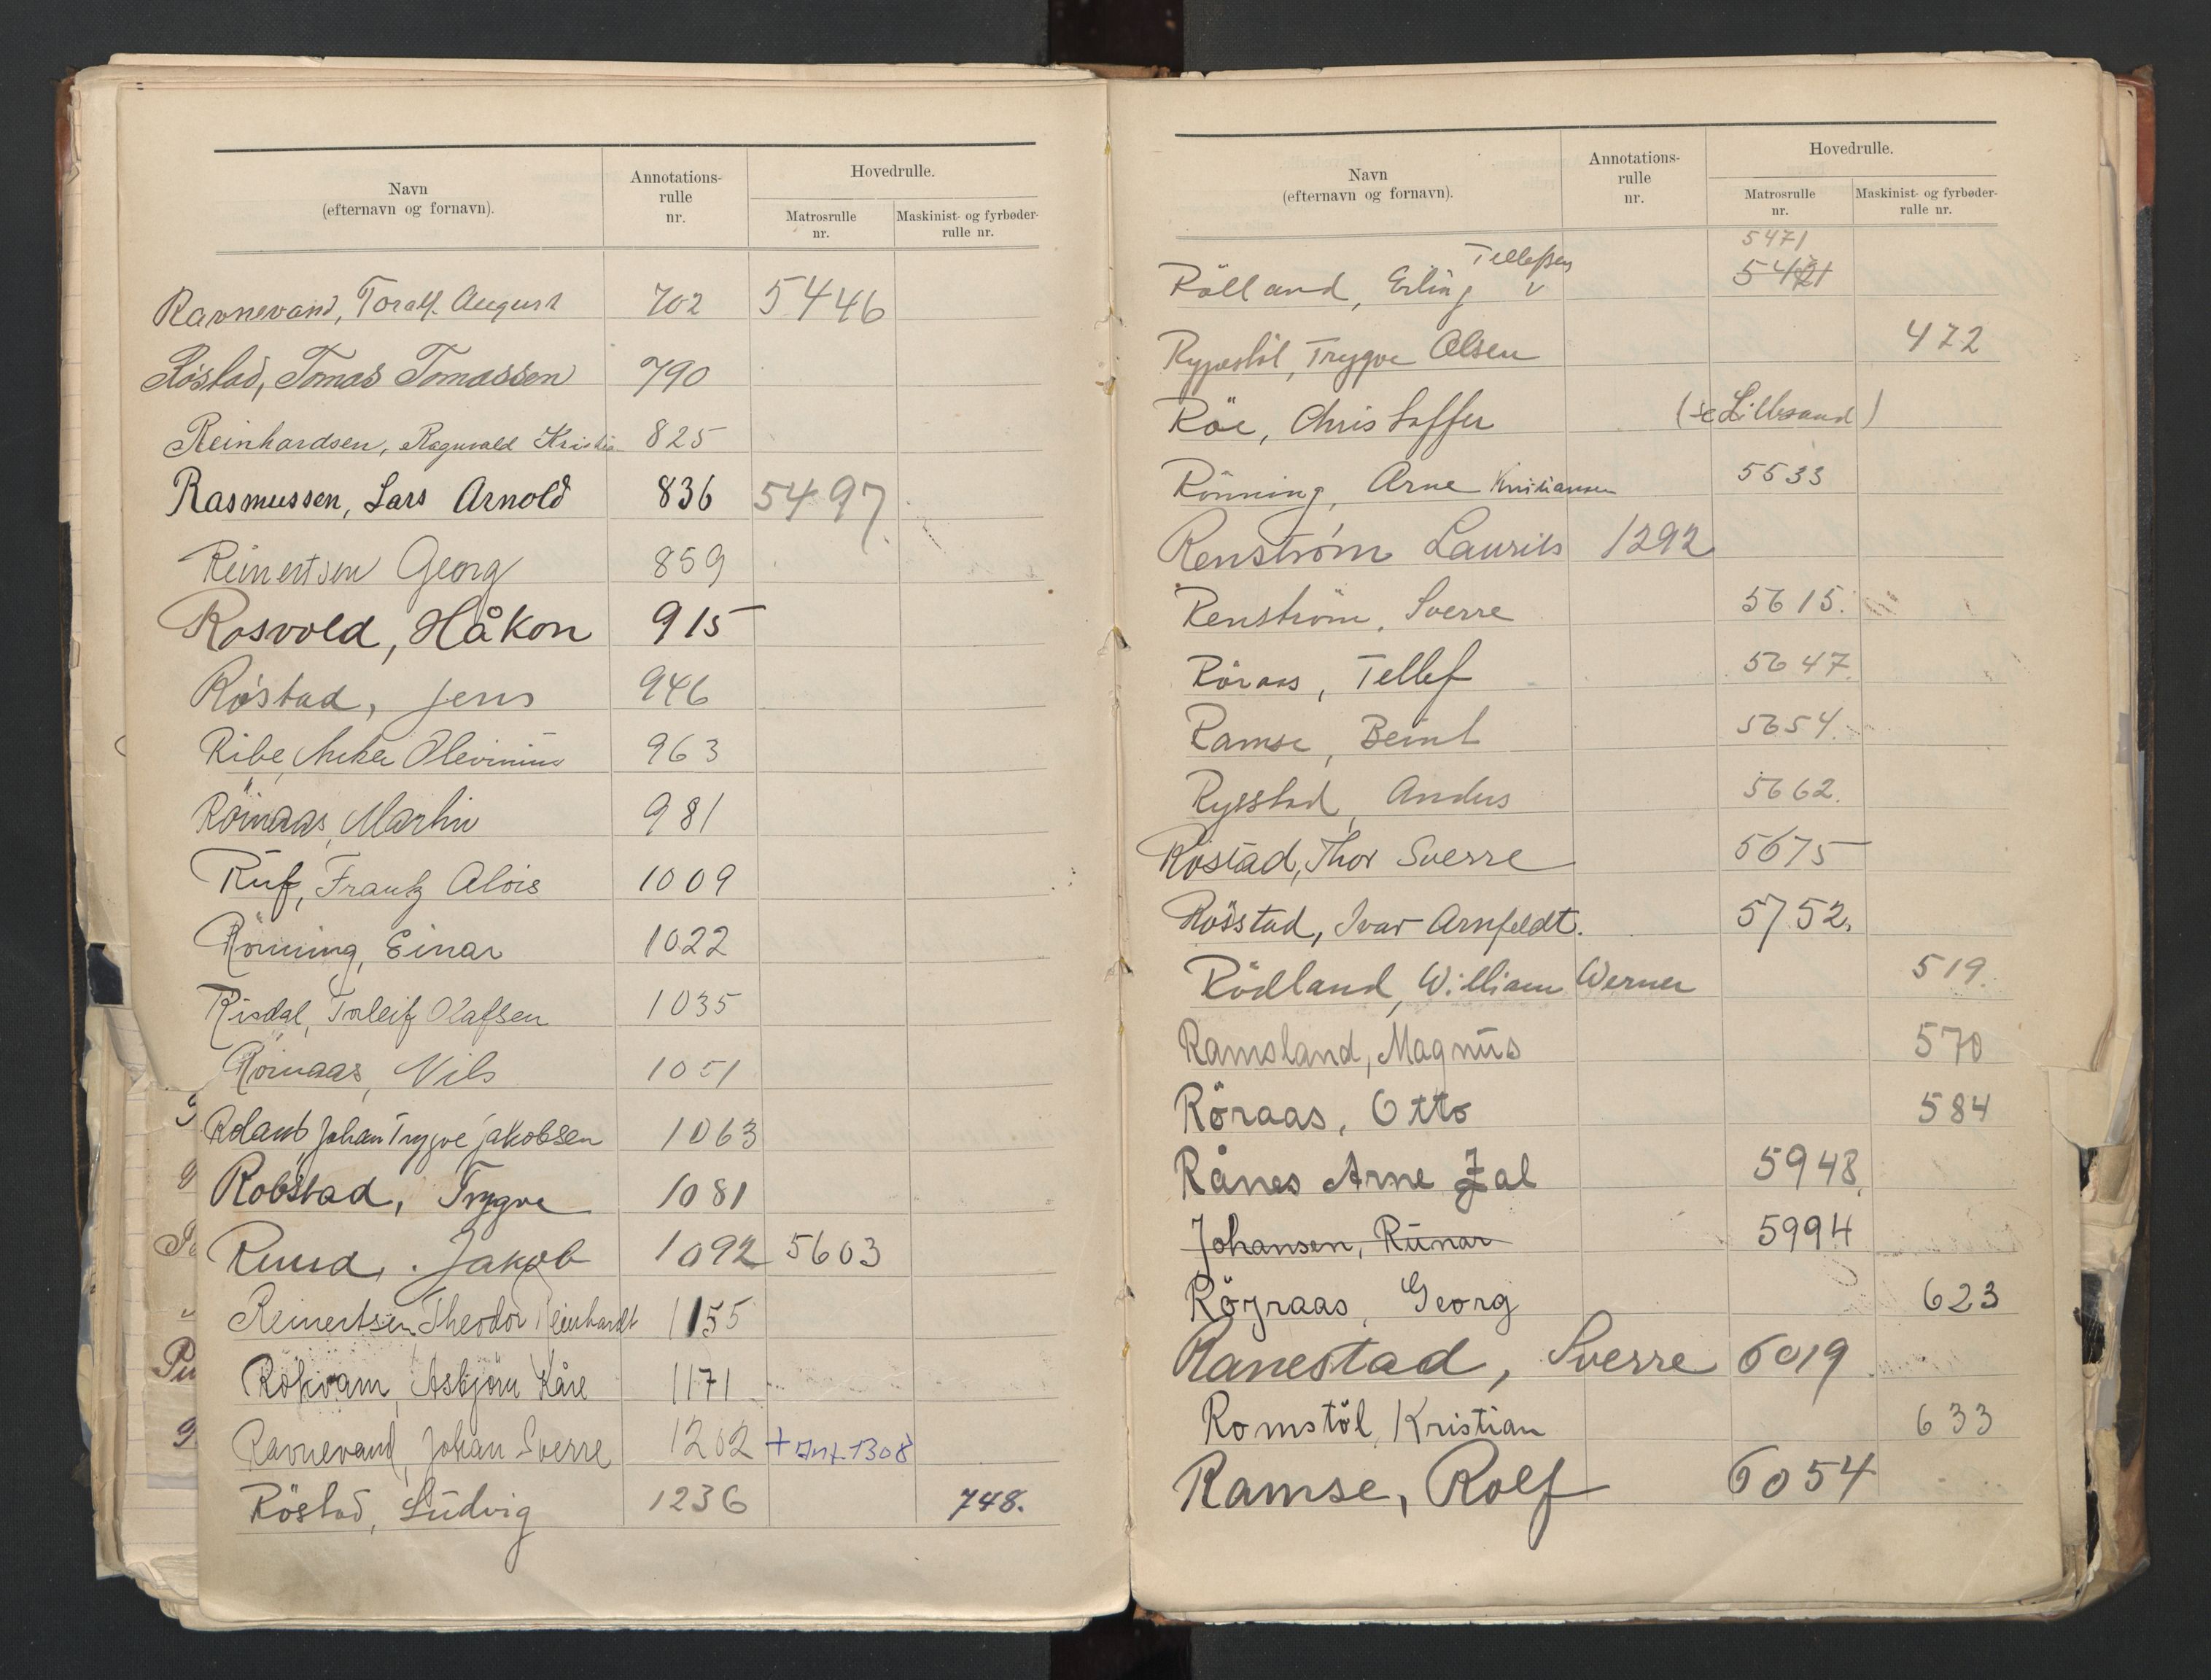 Navn
(efternavn og fornavn).
Annotations-
rulle
nr.
Hovedrulle.
Matrosrulle
nr.
Maskinist- og fyrbøder-
rulle nr.
Ravnevand, Toralf. August 702 5446
Röstad, Tomas Tomassen 790
Reinhardsen, Ragnvald Kristia 825
Rasmussen, Lars Arnold 836 5497
Reinertsen Georg 859
Rosvold, Håkon 915
Röstad, Jens 946
Ribe, Olevinius 963
Röinaas, Martin 981
Ruf, Frantz Alois 1009
Rönning, Einar 1022
Risdal, Torleif Olafsen 1035
Röinaas, Nils 1051
Johan Trygve Jakobsen 1063
Robstad, Trygve 1081
Ruud, Jakob 1092 5603
Reinertsen Theodor Reinhardt 1155
Rökvam, Asbjörn Kåre 1171
Ravnevand, Johan Sverre 1202 + Ant. 1308
Röstad, Ludvig 1236 748.
Navn
(efternavn og fornavn).
Annotations-
rulle
nr.
Hovedrulle.
Matrosrulle
nr.
Maskinist- og fyrbøder-
rulle nr.
Tellefsen 5471
Rölland, Erling v 5421
Rypestöl, Trygve Olsen 472
Röe, Christoffer (se Lillesand)
Rönning, Arne Kristiansen 5533
Renström Laurits 1292
Renström, Sverre 5615.
Röraas, Tellef 5647.
Ramse, Beint 5654.
Rysstad, Anders 5662.
Röstad, Thor Sverre 5675
Rösstad, Ivar Arnfeldt. 5752.
Rödland, William Werner 519.
Ramsland, Magnus 570
Röraas, Otto 584
Rånes Arne Jal 5948.
Johansen, Runar 5994
Röyraas, Georg 623
Ranestad, Sverre 6019
Romstöl, Kristian 633
Ramse, Rolf 6054